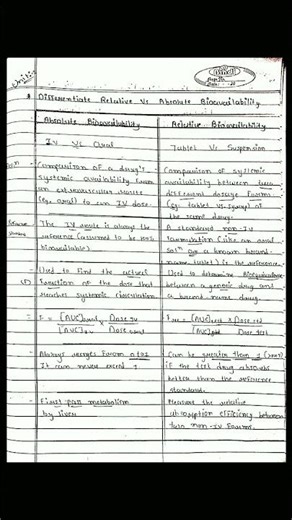 * Differentiate Relative Vs Absolute Bioavailability
Absolute Bioavailability
Relative Bioavailability
IV Vs Oral
Tablet Vs Suspension
- Comparison of a drug's
systemic availability from
an extravascular route
(eg. oral) to an IV dose.
Comparison of systemic
availability between two
different dosage forms
(eg. tablet vs syrup) of
the same drug.
- The IV route is always the
reference (assumed to be 100%
bioavailable)
A standard non-IV
formulation (like an oral
solⁿ or a known brand-
name tablet) is the reference.
- Used to find the actual
(F) Fraction of the dose that
reaches systemic circulation
Used to determine Bioequivalence
between a generic drug and
a brand name drug.
- F = [AUC]oral/[AUC]IV × Dose IV/Dose oral
Frel = [AUC]test/[AUC]std × Dose std/Dose test
- Always ranges from 0 to 1
It can never exceed 1.
Can be greater than 1 (100%)
if the test drug absorbs
better than the reference
standard.
- First pass metabolism
by liver
Measure the relative
absorption efficiency between
two non-IV forms.